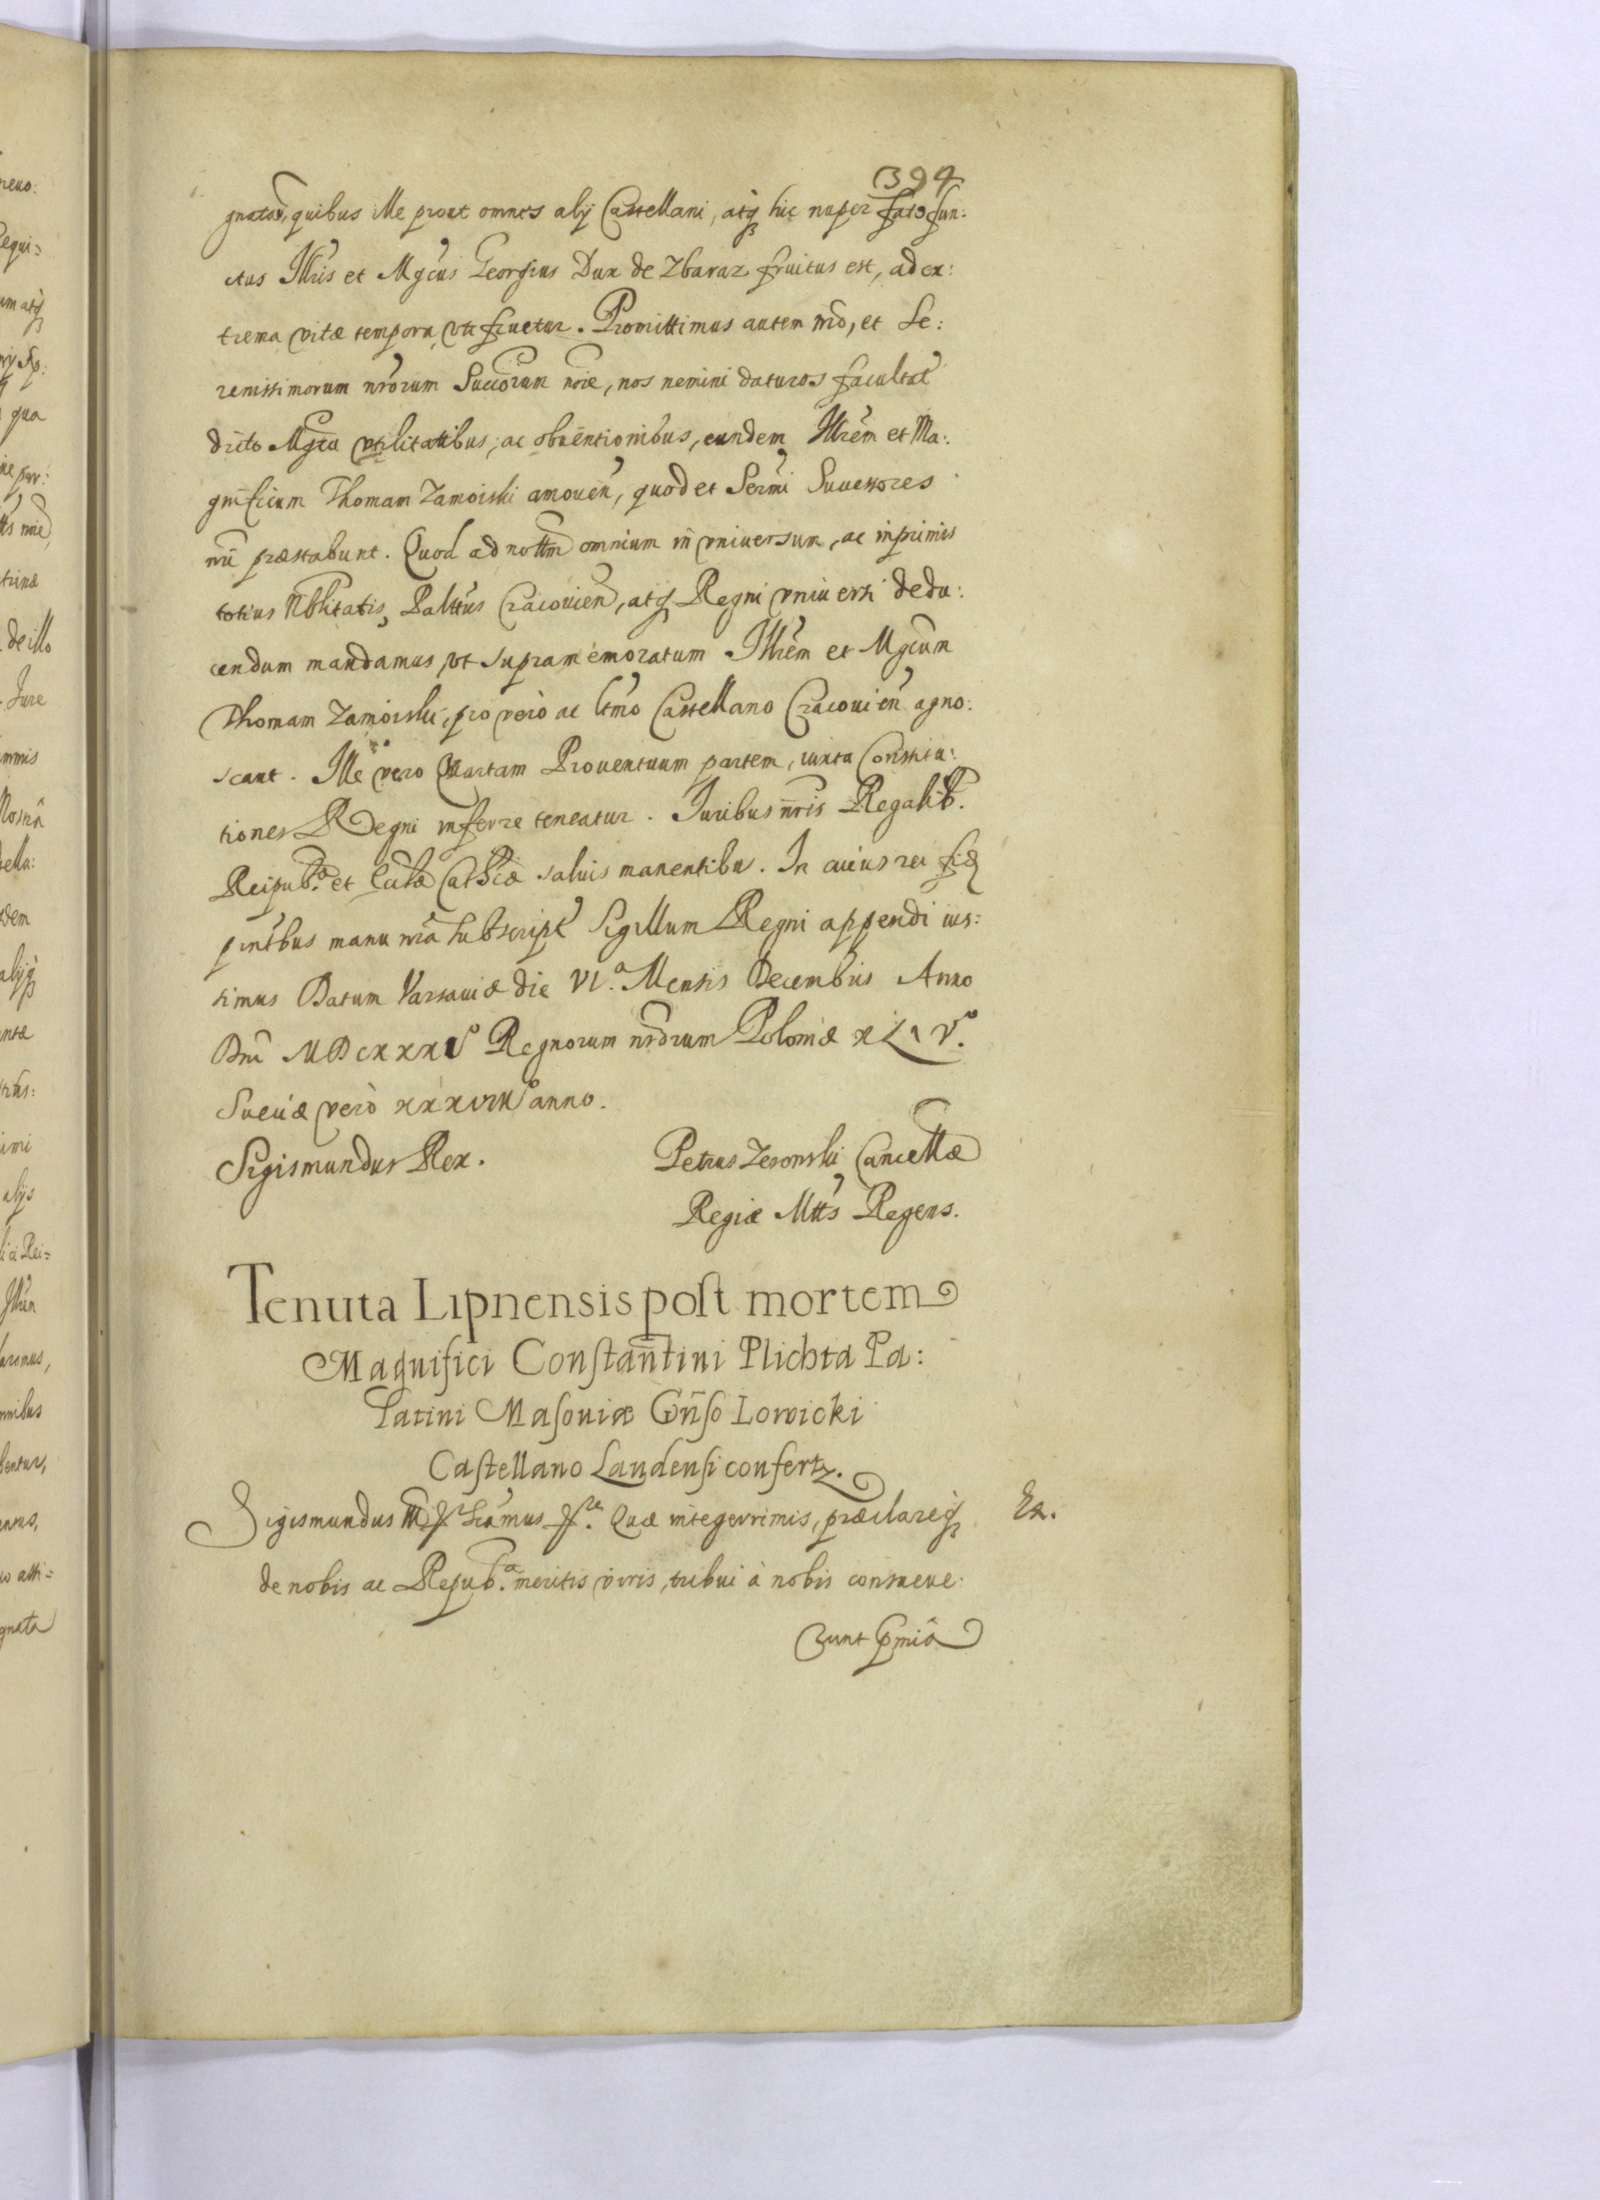 394
gnatos, quibus Ille prout omnes alij Castellani, atq hic nuper fato fun:
ctus Illris et Mgcus Georgius Dux de Zbaraz fruitus est, ad ex:
trema vitæ tempora, vti fruetur. Promittimus autem nro, et Se:
renissimorum nrorum Succorum noie, nos nemini daturos facultat
dicto Mgco vtilitatibus, ac obuentionibus, eundem Illrem et Ma:
gnificum Thomam Zamoiski amouen, quod et Sermi Successores
nri præstabunt. Quod ad notm omnium in vniuersum, ac inprimis
totius Nblitatis, Palttus Cracouien, atq Regni vniuersi dedu:
cendum mandamus, vt supramemoratum Illrem et Mgcum
Thomam Zamoiski, pro vero ac ltmo Castellano Cracouien agno:
scant. Ille vero Quartam Prouentuum partem, iuxta Constitu:
tiones Regni inferre teneatur. Juribus nris Regalib.
Reipub.æ et Ecclæ Cathcæ saluis manentibu. In cuius rei fid
pntibus manu nra subscript Sigillum Regni appendi ius:
simus Datum Varsauiæ die VI.a Mensis Decembris Anno
Dni MDCXXXIo Regnorum nrorum Poloniæ XLIVo.
Sueciæ vero XXXVIIIo anno.
Sigismundus Rex. Petrus Zeronski Cancellæ
Regiæ Mttis Regens.
Tenuta Lipnensis post mortem
Magnifici Constantini Plichta Pa:
latini Masoviæ Gnso Lowicki
Castellano Landensi confertr.
Sigismundus III Sramus Quæ integerrimis, præclareq Ex.
de nobis ac Repub.a meritis viris, tribui à nobis consueue:
runt pmia